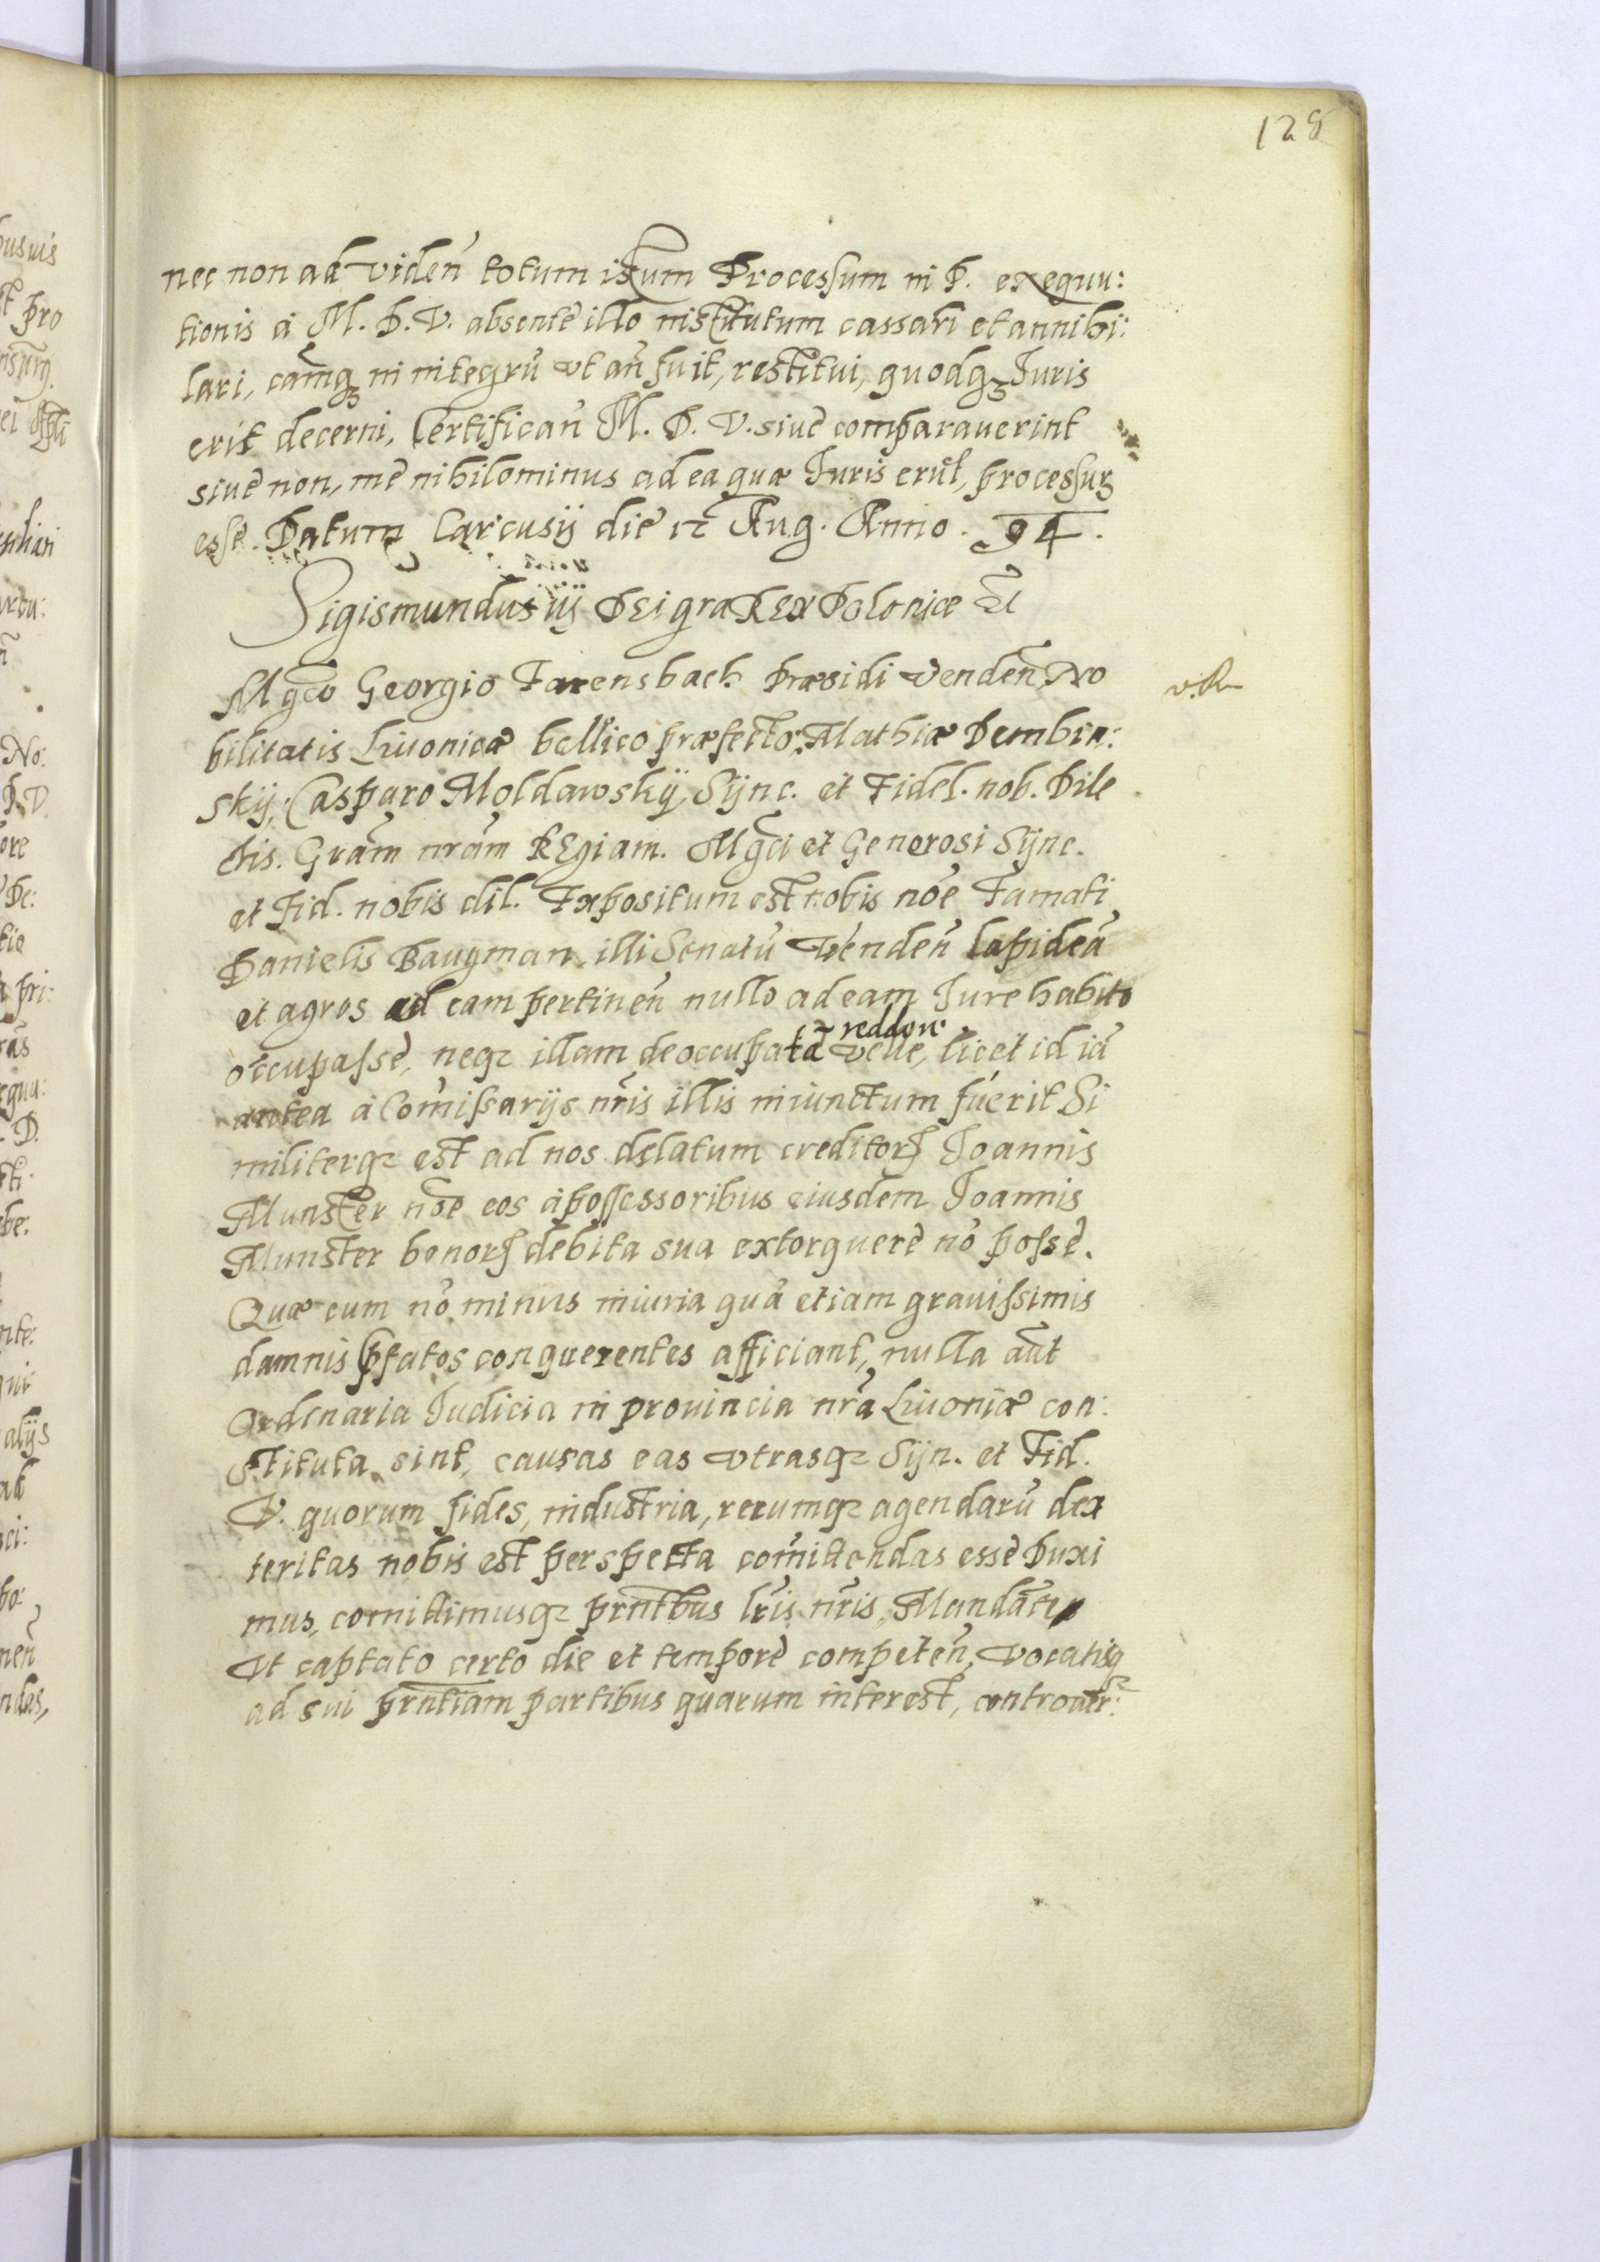 128
nec non ad viden̄ totum istum Processum in P. exequu:
tionis à M. D. V. absente illo institutum cassari et annihi:
lari, eam̄qꝫ in integrū vt an̄ fuit, restitui, quodqꝫ Iuris
erit decerni, Certifican̄ M. D. V. siue comparauerint
siue non, me nihilominus ad ea quæ Iuris erūt, processurꝫ
esse. Datum Carcusij die 12 Aug. Anno. 94.
Sigismundus iij DEi gra REx Poloniæ
Mgco Georgio Farensbach Præsidi Venden̄, No
v.R
bilitatis Liuonicæ bellico præfecto; Mathiæ Dembin:
skij, Casparo Moldawskij, Sÿnc. et Fidel. nob. Dile
ctis. Grām nrām REgiam. Mgci et Generosi Sÿnc.
et Fid. nobis dil. Expositum est nobis nōe Famati
Danielis Baugman illi Senatū Wenden̄ lapideā
et agros ad eam pertinen̄ nullo ad eam Iure habito
reddere
occupasse, neqꝫ illam deoccupatā velle, licet id iā
antea à Com̄issarijs nr̄is illis iniunctum fuerit Si
militerqꝫ est ad nos delatum creditorꝫ Ioannis
Munster nōe eos à possessoribus eiusdem Ioannis
Munster bonorꝫ debita sua extorquere nō posse.
Quæ cum nō minus iniuria quā etiam grauissimis
damnis pfatos conquerentes afficiant, nulla aūt
Ordenaria Iudicia in prouincia nrā Liuoniæ con:
stituta sint, causas eas vtrasqꝫ Sÿn. et Fid.
V. quorum fides, industria, rerumqꝫ agendarū dex
teritas nobis est perspecta com̄ittendas esse Duxi
mus, comittimusqꝫ prn̄tbus lr̄is nr̄is, Mandātes
Vt captato certo die et tempore competen̄, vocatisqꝫ
ad sui prn̄tiam partibus quarum interest, controuer: